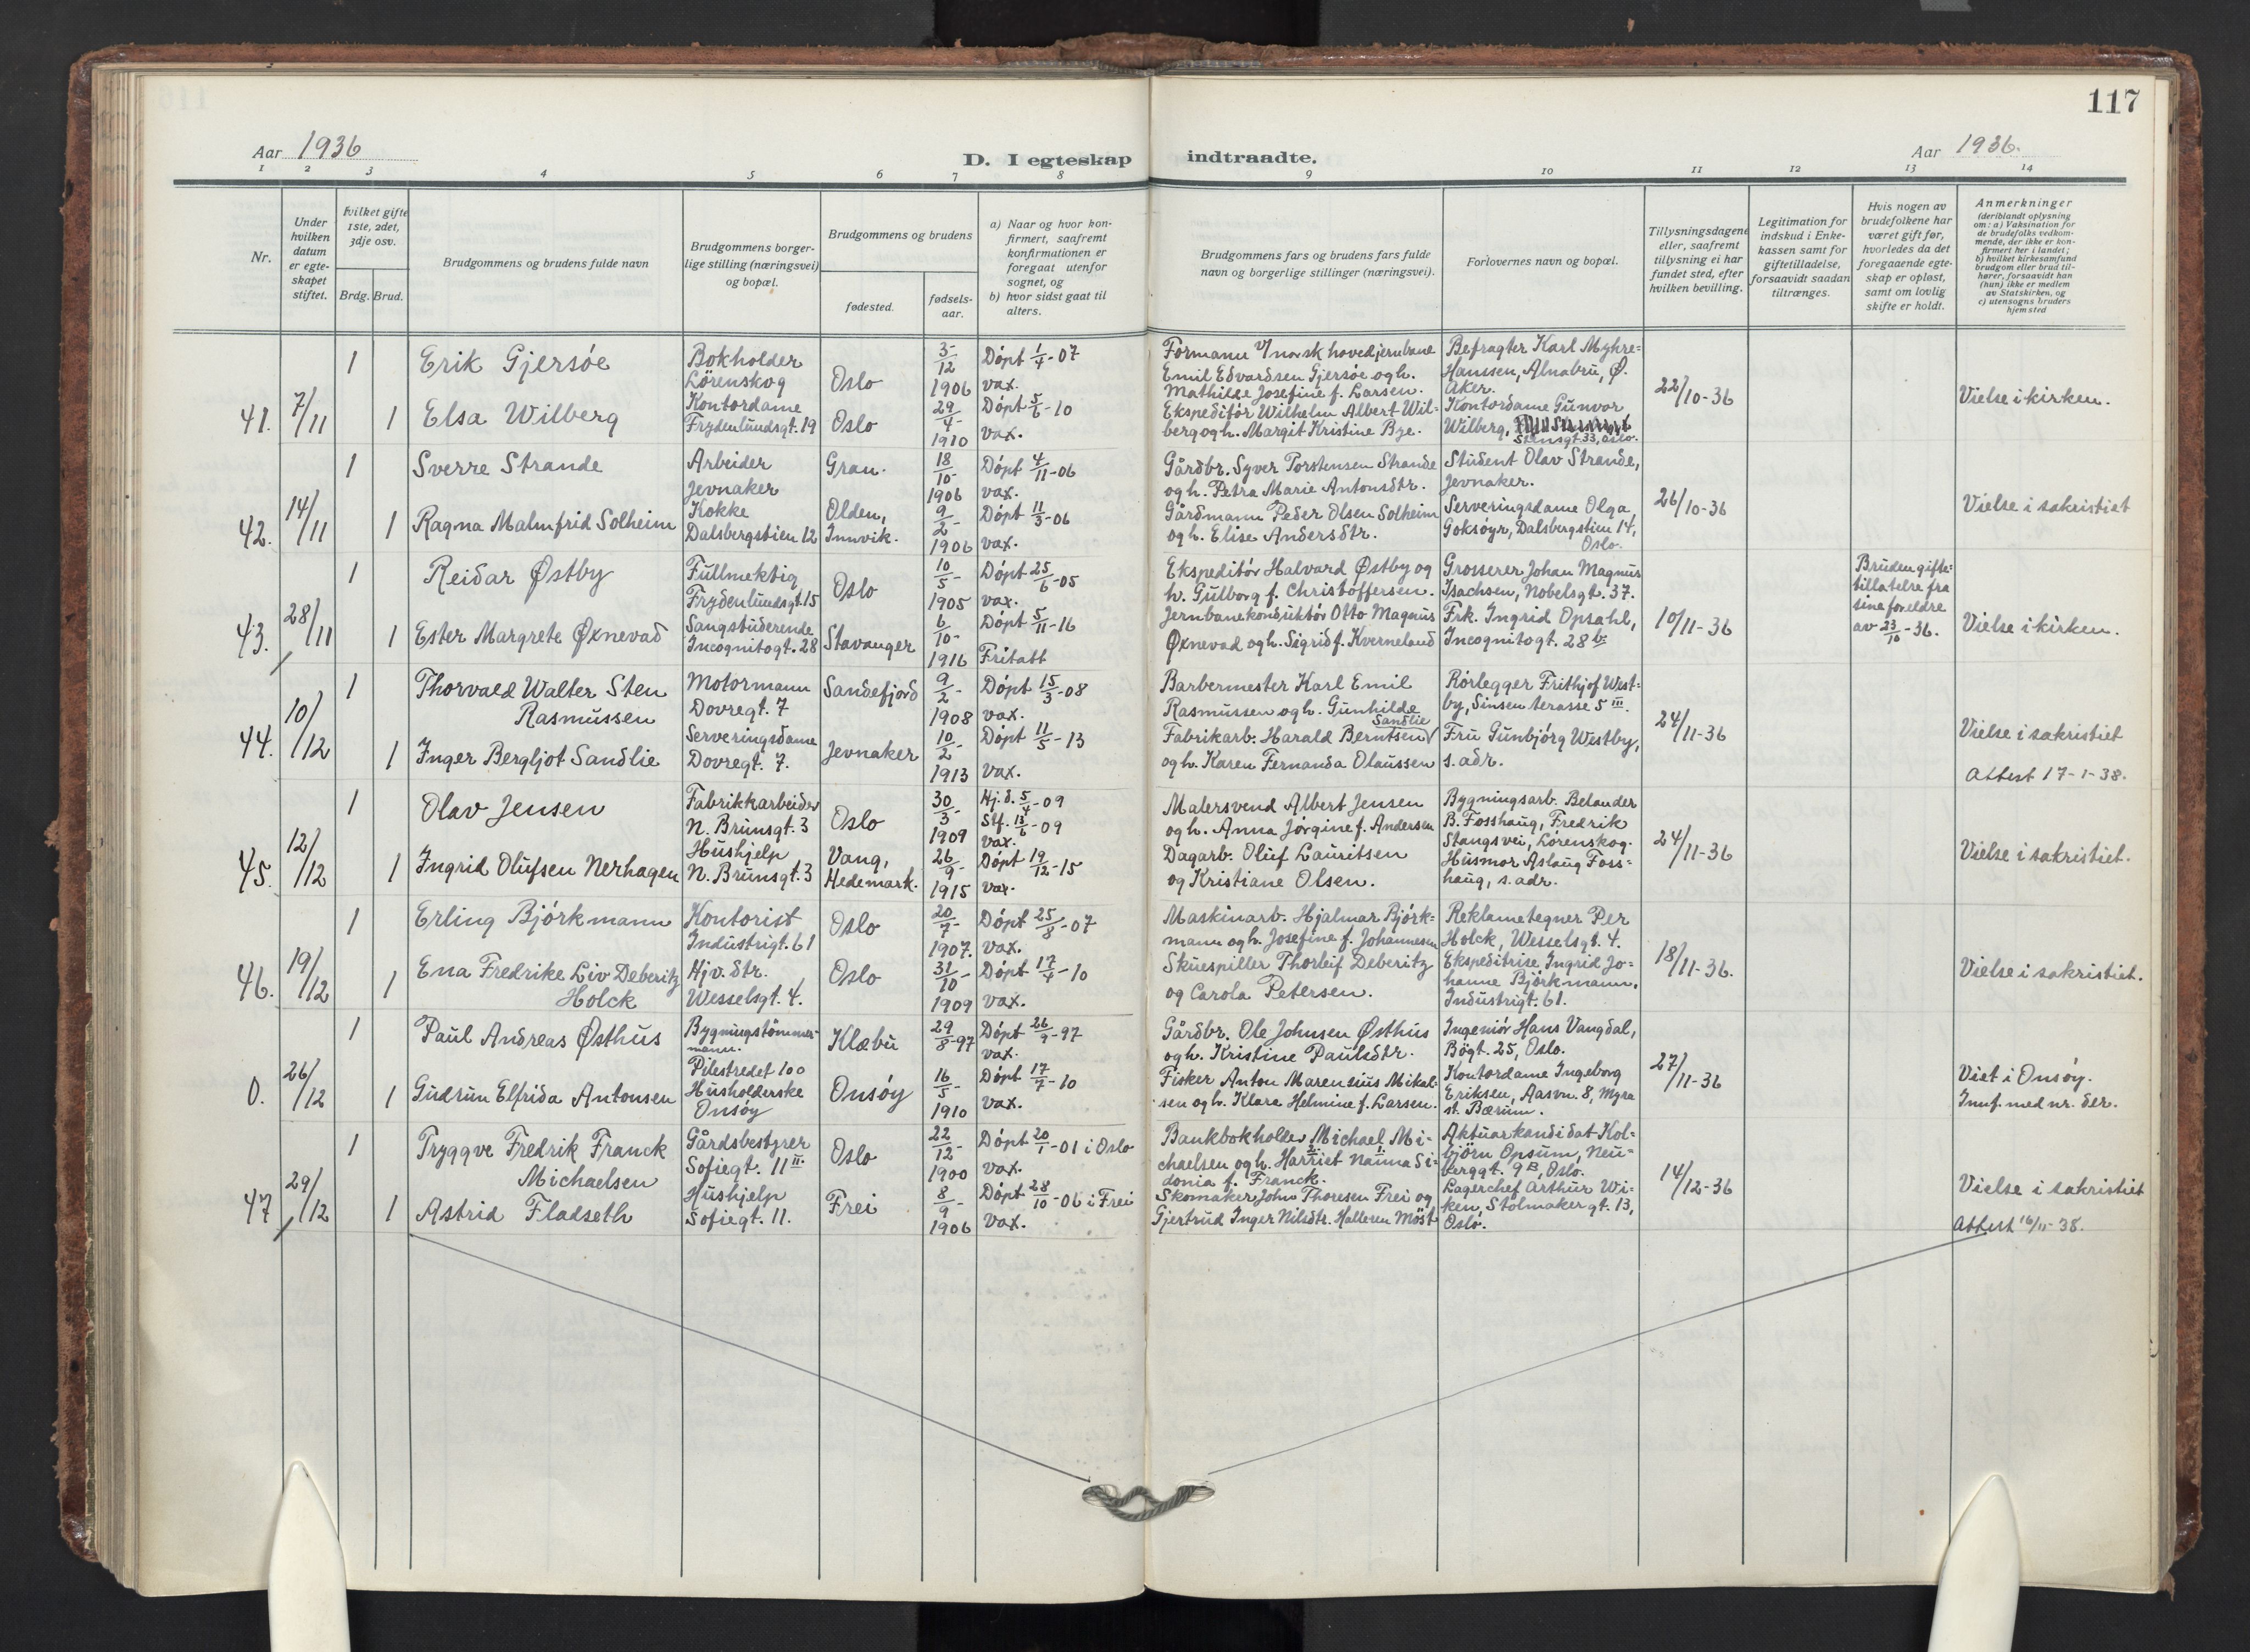 117
Aar 1936
D. I egteskap indtraadte.
Aar 1936.
1 2 3 4 5 6 7 8 9 10 11 12 13 14
Nr.
Under hvilken datum er egteskapet stiftet.
Hvilket gifte 1ste, 2det, 3dje osv.
Brdg. Brud.
Brudgommens og brudens fulde navn
Brudgommens borgerlige stilling (næringsvei) og bopæl.
Brudgommens og brudens
fødested.
fødsels-aar.
a) Naar og hvor konfirmert, saafremt konfirmationen er foregaat utenfor sognet, og
b) hvor sidst gaat til alters.
Brudgommens fars og brudens fars fulde navn og borgerlige stillinger (næringsvei).
Forlovernes navn og bopæl.
Tillysningsdagene eller, saafremt tillysning ei har fundet sted, efter hvilken bevilling.
Legitimation for indskud i Enkekassen samt for giftetilladelse, forsaavidt saadan tiltrænges.
Hvis nogen av brudefolkene har været gift før, hvorledes da det foregaaende egteskap er opløst, samt om lovlig skifte er holdt.
Anmerkninger
(deriblandt oplysning om: a) Vaksination for de brudefolks vedkommende, der ikke er konfirmert her i landet; b) hvilket kirkesamfund brudgom eller brud tilhører, forsaavidt han (hun) ikke er medlem av Statskirken, og c) utensogns bruders hjemsted
41. 7/11
1 Erik Gjersøe
Bokholder
Lörenskog
Oslo
3/12 - 1906
Döpt 1/4-07
vax.
Formann v/ norsk hovedjernbane
Emil Edvardsen Gjersøe og h.
Mathilde Josefine f. Larsen.
Befragter Karl Myhre=
Hanssen, Alnabru, Ø.
Aker.
22/10-36
Vielse i kirken.
1 Elsa Wilberg
Kontordame
Frydenlundsgt. 19
Oslo
29/4 - 1910
Döpt 5/6-10
vax.
Ekspeditör Wilhelm Albert Wil=
berg og h. Margit Kristine Bye.
Kontordame Gunvor
Wilberg,
Stensgt 33, Oslo.
42. 14/11
1 Sverre Strande
Arbeider
Jevnaker
Gran.
18/10 - 1906
Döpt 4/11-06
vax.
Gårdbr. Syver Torstensen Strande
og h. Petra Marie Antonsdtr.
Student Olav Strande,
Jevnaker.
26/10-36
Vielse i sakristiet
1 Ragna Malmfrid Solheim
Kokke
Dalsbergstien 12
Olden,
Innvik.
9/2 - 1906
Döpt 11/3-06
vax.
Gårdmann Peder Olsen Solheim
og h. Elise Andersdtr.
Serveringsdame Olga
Goksöyr, Dalsbergstien 14,
Oslo.
43. 28/11
1 Reidar Østby
Fullmektig
Frydenlundsgt. 15
Oslo
10/5 - 1905
Döpt 25/6-05
vax.
Ekspeditör Halvard Østby og
h. Gulborg f. Christoffersen.
Grosserer Johan Magnus
Isachsen, Nobelsgt. 37.
10/11-36
Bruden gifte=
tillatelse fra
sine foreldre
av 23/10-36.
Vielse i kirken.
1 Ester Margrete Øxnevad
Sangstuderende
Incognitogt. 28
Stavanger
6/10 - 1916
Döpt 5/11-16
Fritatt
Jernbanekonduktör Otto Magnus
Øxnevad og h. Sigrid f. Kverneland
Frk. Ingrid Opsahl,
Incognitogt. 28 b.
44. 10/12
1 Thorvald Walter Sten
Rasmussen
Motormann
Dovregt. 7
Sandefjord
9/2 - 1908
Döpt 15/3-08
vax.
Barbermester Karl Emil
Rasmussen og h. Gunhilde
Rörlegger Frithjof West=
by, Sinsen terasse 5 III.
24/11-36
Vielse i sakristiet
Attest 17-1-38.
1 Inger Bergljot Sandlie
Serveringsdame
Dovregt. 7.
Jevnaker
10/2 - 1913
Döpt 11/5-13
vax.
Sandlie
Fabrikarb. Harald Berntsen √
og h. Karen Fernanda Olaussen
Fru Gunbjörg Westby,
s. adr.
45. 12/12
1 Olav Jensen
Fabrikkarbeider
N. Brunsgt. 3
Oslo
30/3 - 1909
Hj.d. 5/4-09
Stf. 13/6-09
vax.
Malersvend Albert Jensen
og h. Anna Jörgine f. Andersen
Bygningsarb. Belander
B. Fosshaug, Fredrik
Stangs vei, Lörenskog.
24/11-36
Vielse i sakristiet.
1 Ingrid Olufsen Nerhagen
Hushjelp
N. Brunsgt. 3
Vang,
Hedemark.
26/9 - 1915
Döpt 19/12-15
vax.
Dagarb. Oluf Lauritsen
og Kristiane Olsen.
Husmor Aslaug Foss=
haug, s. adr.
46. 19/12
1 Erling Björkmann
Kontorist
Industrigt. 61
Oslo
20/7 - 1907.
Döpt 25/8-07
vax.
Maskinarb. Hjalmar Björk=
mann og h. Josefine f. Johannesen
Reklametegner Per
Holck, Wesselsgt. 4.
18/11-36.
Vielse i sakristiet.
1 Ena Fredrike Liv Deberitz
Holck
Hjv. dtr.
Wesselsgt. 4.
Oslo
31/10 - 1909
Döpt 17/4-10
vax.
Skuespiller Thorleif Deberitz
og Carola Petersen.
Ekspeditrise Ingrid Jo=
hanne Björkmann,
Industrigt. 61.
0. 26/12
1 Paul Andreas Østhus
Bygningstömmer=
mann.
Pilestredet 100
Klæbu
29/8-97
Döpt 26/9-97
vax.
Gårdbr. Ole Johnsen Østhus
og h. Kristine Paulsdtr.
Ingeniör Hans Vangdal,
Bögt. 25, Oslo.
27/11-36
Viet i Onsöy.
Innf. med nr. der.
1 Gudrun Elfrida Antonsen
Husholderske
Onsöy
Onsöy
16/5 - 1910
Döpt 17/7-10
vax.
Fisker Anton Marensius Mikal=
sen og h. Klara Helmine f. Larsen.
Kontordame Ingeborg
Eriksen, Aasvn. 8, Myra
st. Bærum.
47. 29/12
1 Tryggve Fredrik Franck
Michaelsen
Gårdsbestyrer
Sofiegt. 11 II.
Oslo
22/12 - 1900
Döpt 20/1-01 i Oslo
vax.
Bankbokholder Michael Mi=
chaelsen og h. Harriet Nanna Si=
donia f. Franck.
Aktuarkandidat Kol=
björn Opsum, Neu=
berggt. 9 B, Oslo.
14/12-36
Vielse i sakristiet
Attest 16/11-38.
1 Astrid Fladseth
Hushjelp
Sofiegt. 11.
Frei
8/9 - 1906
Döpt 28/10-06 i Frei
vax.
Skomaker John Thoresen Frei og
Gjertrud Inger Nilsdtr. Hallesen Möst
Lagerchef Arthur Wi=
ken, Stolmakergt. 13,
Oslo.